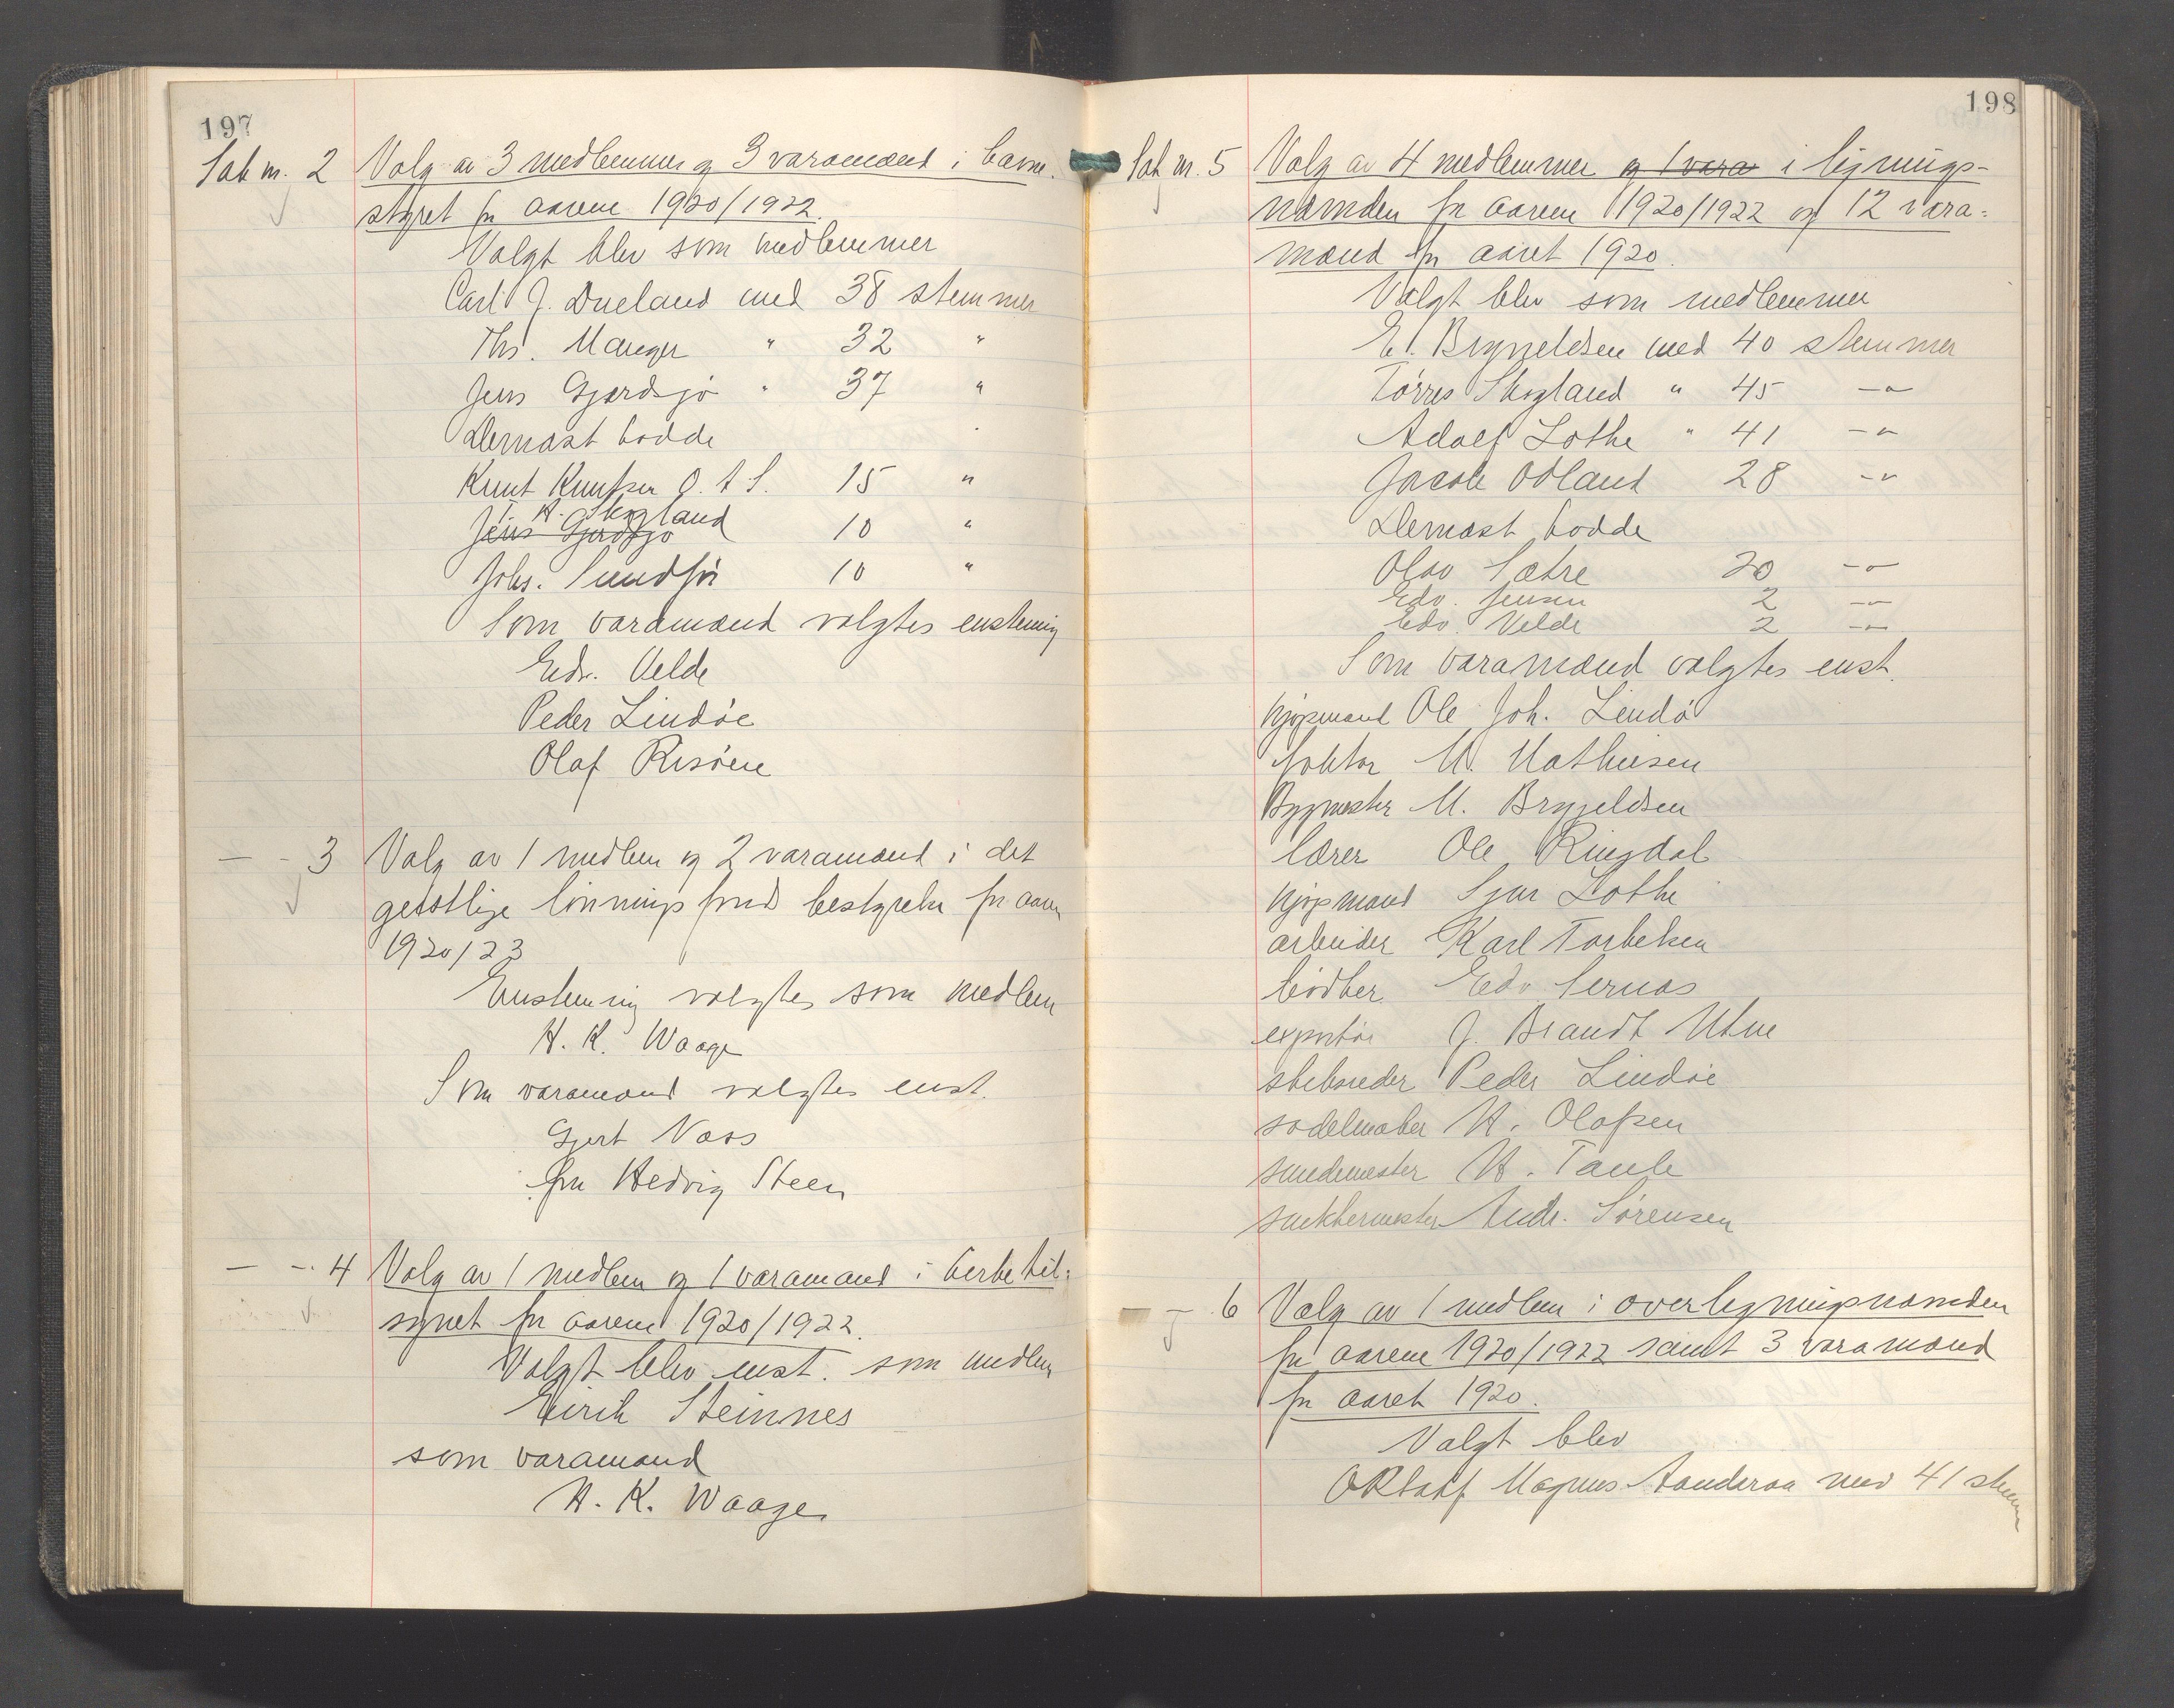 197
Sak nr. 2 Valg av 3 medlemmer og 3 varamænd i havne-
styret for aarene 1920/1922.
Valgt blev som medlemmer
Carl J. Dueland med 38 stemmer
Ths. Manger " 32 "
Jens Gjerdsjø " 37 "
Dernæst hadde
Knut Knutsen O. A. S. 15 "
T. H. Skogland
Jens Gjerdsjø 10 "
Johs. Sundfør 10 "
Som varamænd valgtes enstemig
Edv. Velde
Peder Lindøe
Olaf Risøen
— - 3 Valg av 1 medlem og 2 varamænd i det
geistlige lønningsfonds bestyrelse for aarene
1920/23
Enstemmig valgtes som medlem
H. K. Waage
Som varamænd valgtes enst.
Gjert Naas
fru Hedvig Steen
— - 4 Valg av 1 medlem og 1 varamand i kirketil-
synet for aarene 1920/1922.
Valgt blev enst. som medlem
Eirik Steinnes
som varamand
H. K. Waage
198
Sak nr. 5 Valg av 4 medlemmer og 1 vara i lignings-
næmnden for aarene 1920/1922 og 12 vara-
mænd for aaret 1920.
Valgt blev som medlemmer
E. Brynjeldsen med 40 stemmer
Tørres Skogland " 45 —"—
Adolf Lothe " 41 —"—
Jacob Odland 28 —"—
Dernæst hadde
Olav Sætre 20 —"—
Edv. Jensen 2 —"—
Edv. Velde 2 —"—
Som varamænd valgtes enst.
Kjøpmand Ole Joh. Lindø
doktor M. Mathiesen
Bygmester M. Brynjeldsen
lærer Ole Ringdal
kjøpmand Sjur Lothe
arbeider Karl Torbeksen
bødker Edv Sernas
exportør J. Brandt Utne
skibsreder Peder Lindøe
sadelmaker H. Olafsen
smedmester H. Taule
snekkermester Andr. Sørensen
— 6 Valg av 1 medlem i overligningsnæmnden
for aarene 1920/1922 samt 3 varamænd
for aaret 1920.
Valgt blev
Magnus Aanderaa med 41 stemmer